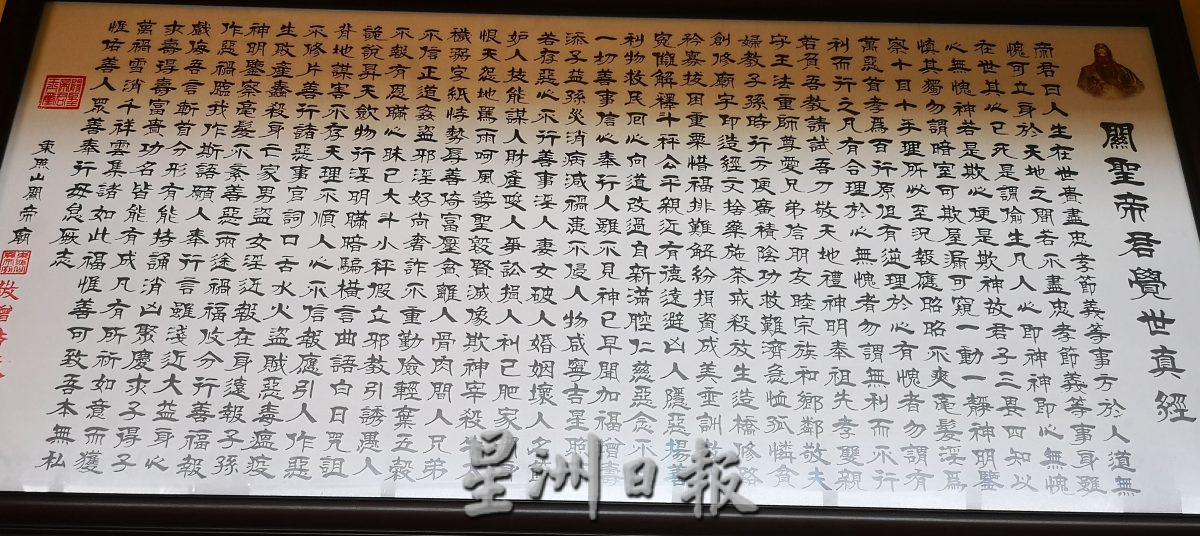 關聖帝君覺世真經
帝君曰人生在世貴盡忠孝節義等事方於人道無
愧可立身於天地之間若不盡忠孝節義等事身雖
在世其心已死是謂偷生凡人心即神神即心無愧
心無愧神若是欺心便是欺神故君子三畏四知以
慎其獨勿謂暗室可欺屋漏可窺一動一靜神明鑒
察十目十手理所必至況報應昭昭不爽毫髮淫為
萬惡首孝為百行原但有逆理於心有愧者勿謂有
利而行之凡有合理於心無愧者勿謂無利而不行
若負吾教請試吾刀敬天地禮神明奉祖先孝雙親
守王法重師尊愛兄弟信朋友睦宗族和鄉鄰敬夫
婦教子孫時行方便廣積陰功救難濟急恤孤憐貧
創修廟宇印造經文捨藥施茶戒殺放生造橋修路
矜寡拔困重粟惜福排難解紛捐資成美垂訓教
冤讎解釋斗秤公平親近有德遠避凶人隱惡揚善
利物救民回心向道改過自新滿腔仁慈惡念不
一切善事信心奉行人雖不見神已早聞加福增壽
添子益孫災消病減禍患不侵人物咸寧吉星照
若存惡心不行善事淫人妻女破人婚姻壞人名節
妒人技能謀人財產唆人爭訟損人利己肥家身
恨天怨地罵雨呵風謗聖毀賢滅像欺神宰殺
穢溺字紙恃勢辱善倚富壓貧離人骨肉間人兄弟
不信正道姦盜邪淫好尚奢詐不重勤儉輕棄五穀
不報有恩瞞心昧己大斗小秤假立邪教引誘愚人
詭說昇天歛物行淫明瞞暗騙橫言曲語白日咒詛
背地謀害不存天理不順人心不信報應引人作惡
不修片善行諸惡事官詞口舌水火盜賊惡毒瘟疫
生敗產蠹殺身亡家男盜女淫近報在身遠報子孫
神明鑒察毫髮不紊善惡兩途禍福攸分行善福報
作惡禍臨我作斯語願人奉行言雖淺近大益身心
戲侮吾言斬首分形有能持誦消凶聚慶求子得子
求壽得壽富貴功名皆能有成凡有所祈如意而獲
萬禍雪消千祥雲集諸如此福惟善可致吾本無私
惟佑善人眾善奉行毋怠厥志
東山關帝廟
敬贈
星洲日報